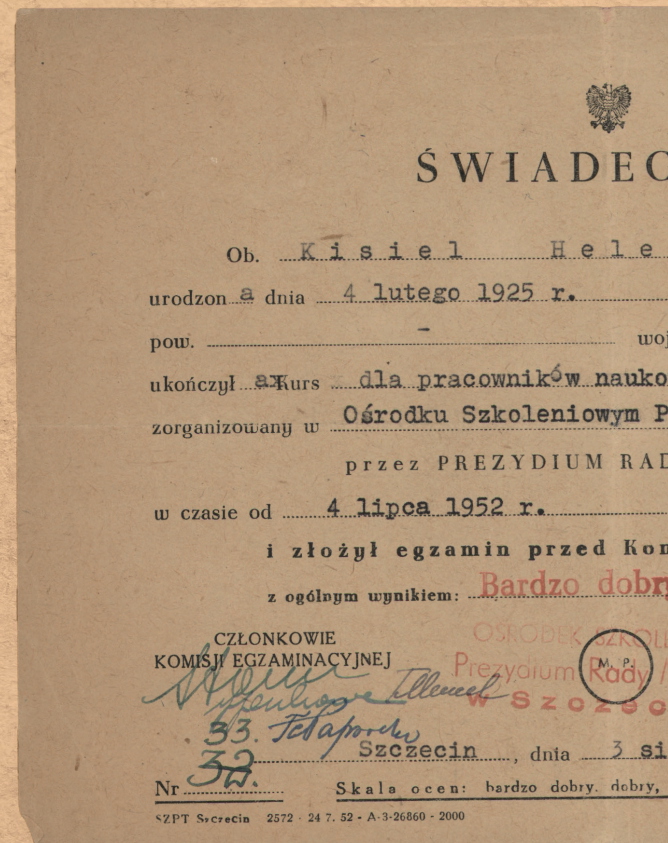 ŚWIADEC
Ob. Kisiel Hele
urodzon a dnia 4 lutego 1925 r.
pow. - woj
ukończył a Kurs dla pracowników nauko
zorganizowany w Ośrodku Szkoleniowym P
przez PREZYDIUM RAD
w czasie od 4 lipca 1952 r.
i złożył egzamin przed Kom
z ogólnym wynikiem: Bardzo dobry
CZŁONKOWIE
KOMISJI EGZAMINACYJNEJ
OŚRODEK SZKOL
Prezydium Rady
w Szczec
M. P.
33.
Szczecin, dnia 3 si
Nr 32.
Skala ocen: bardzo dobry, dobry,
SZPT Szczecin 2572 - 24 7. 52 - A-3-26860 - 2000